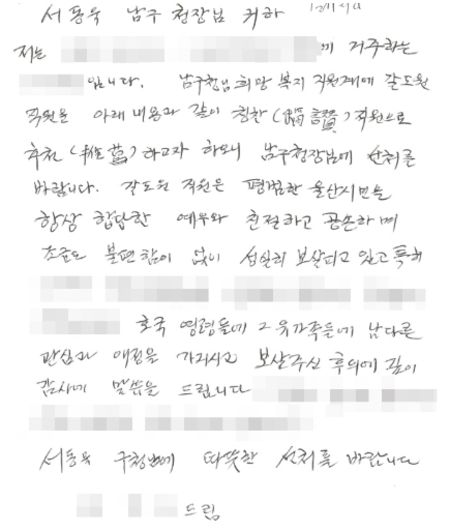 서동욱 남구 청장님 귀하
저는 에 거주하는
입니다. 남구청님 희망 복지 직원계에 갈도원
직원을 아래 내용과 같이 칭찬(稱讚)직원으로
추천(推薦)하고자 하오니 남구청장님에 선처를
바랍니다. 갈도원 직원은 평범한 울산시민을
항상 합당한 예우와 친절하고 공손하며
조금도 불편함이 없이 성실히 보살피고 있고 특히
호국 영령들에 그 유가족들에 남다른
관심과 애정을 가지시고 보살펴주신 후의에 깊이
감사에 말씀을 드립니다
서동욱 구청장님에 따뜻한 선처를 바랍니다
드림